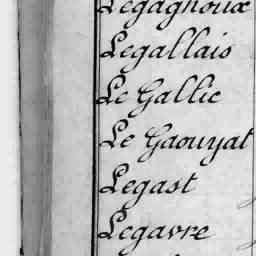 Legagnoux
Legallais
Le Gallic
Le Gaouyat
Legast
Legavre